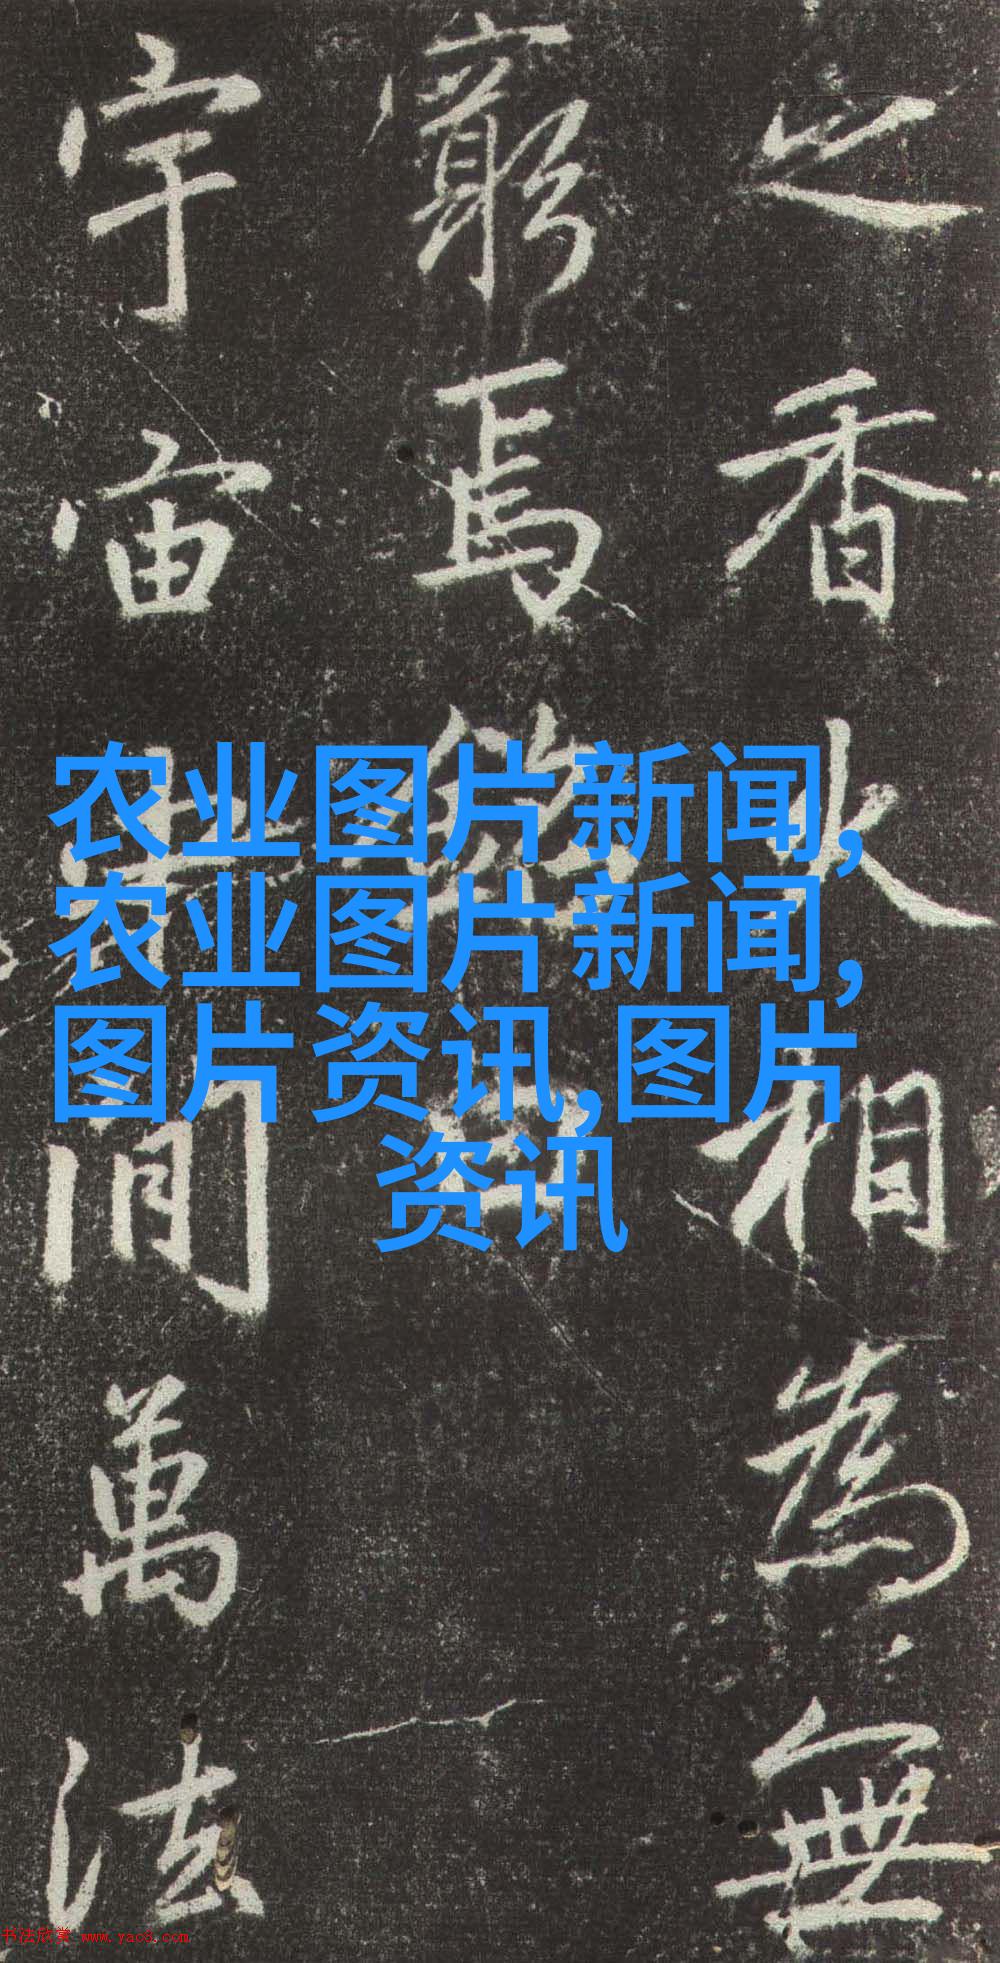 之香火相為無
窮焉
宇宙間萬法
农业图片新闻,
农业图片新闻,
图片资讯,图片
资讯
书法欣赏 www.yac8.com